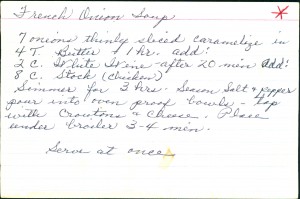 French Onion Soup
7 onions thinly sliced caramelize in
4 T. Butter 1 hr. add:
2 C. White Wine - after 20 min add:
8 C. Stock (chicken)
Simmer for 3 hrs. Season Salt & Pepper
pour into oven proof bowls - top
with Croutons & Cheese. Place
under broiler 3-4 min.
Serve at once